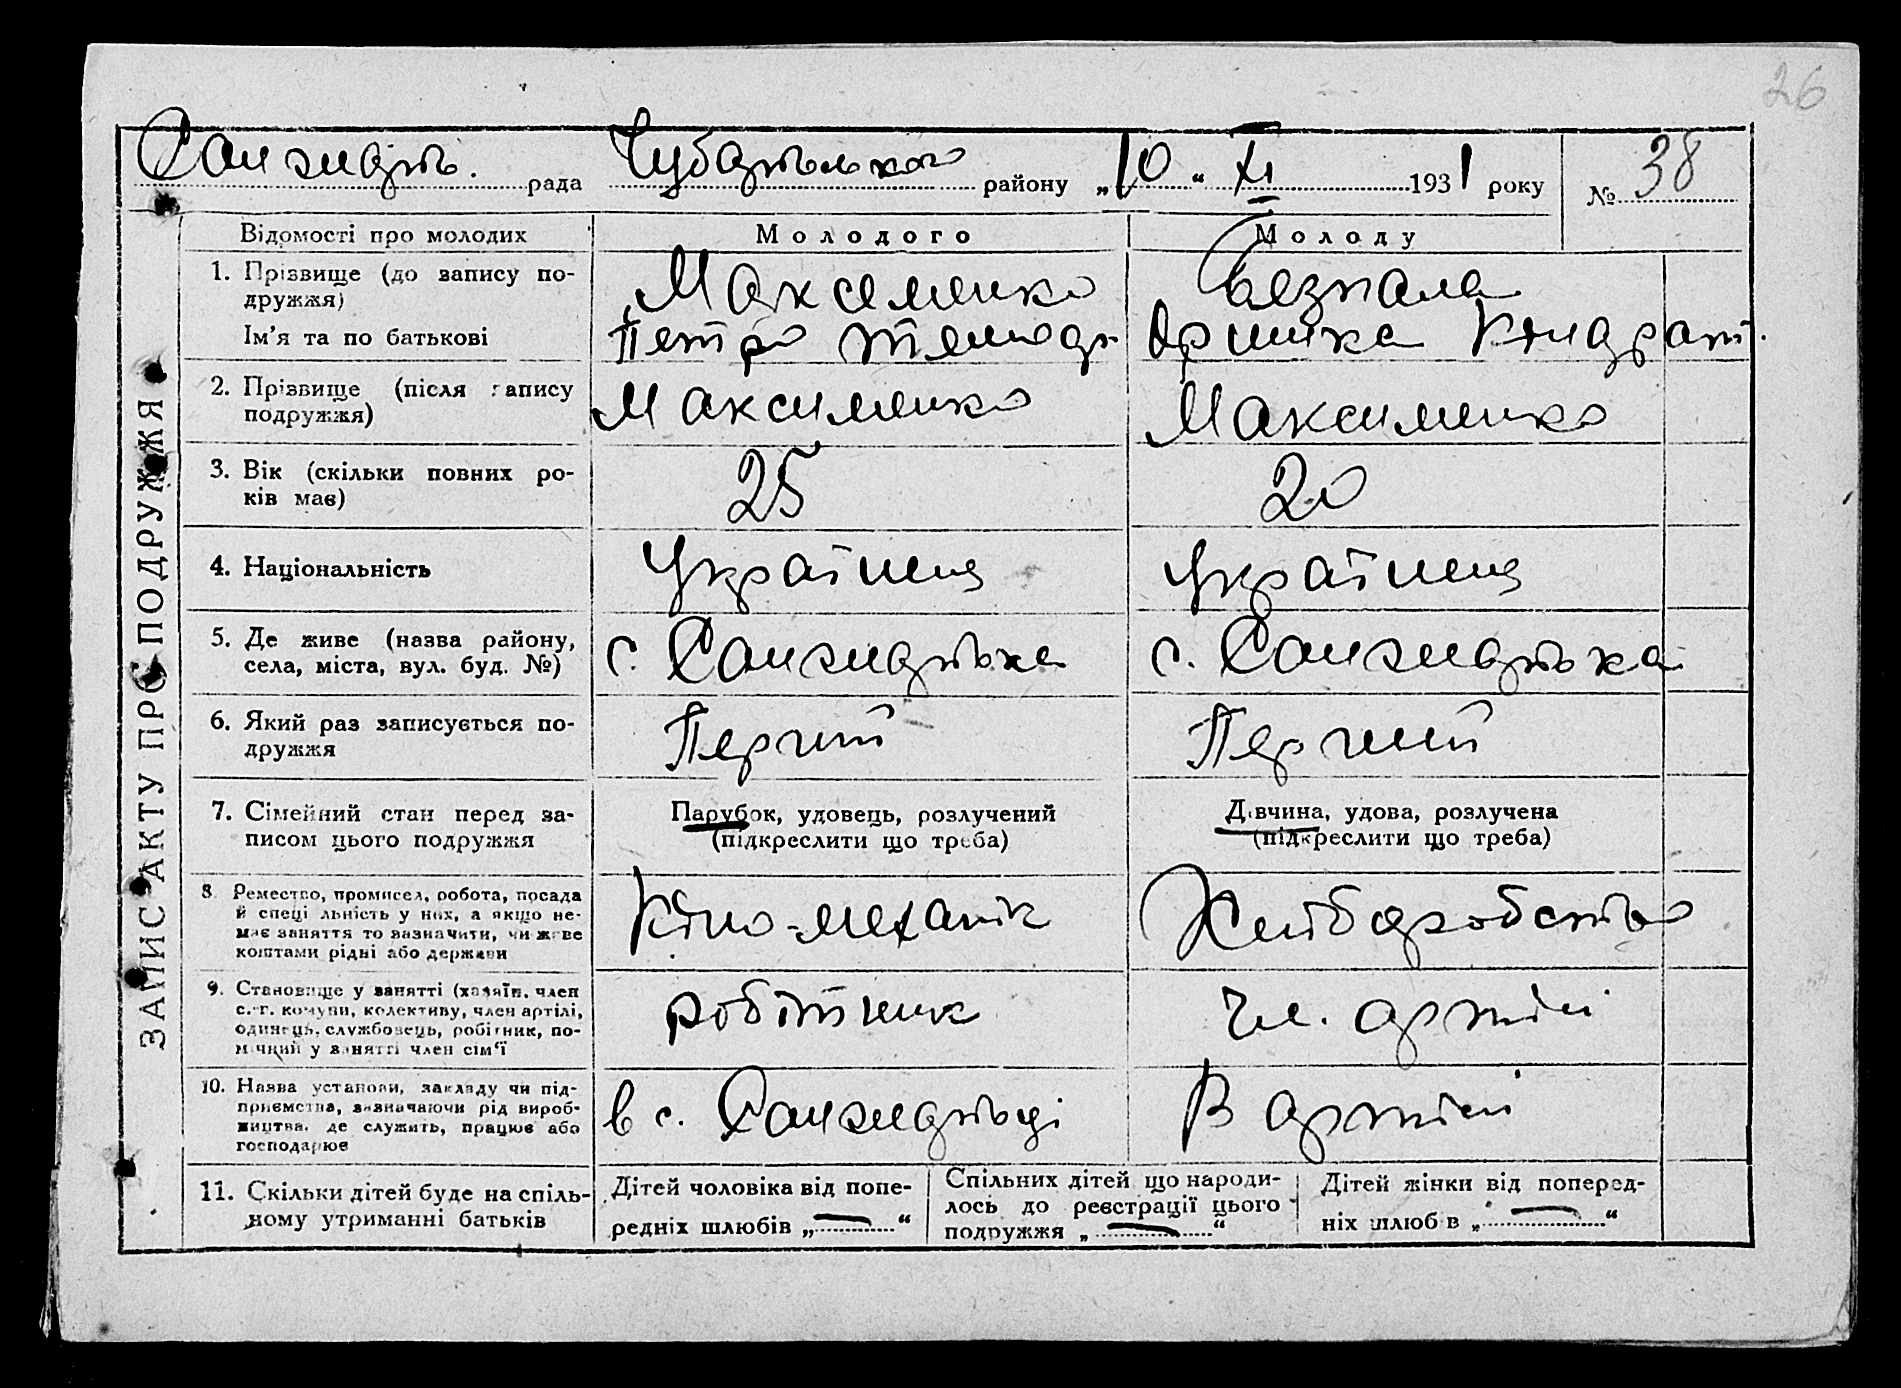 26
Санжар. рада Чубарського району „10“ XI 1931 року № 38
Відомості про молодих Молодого Молоду
1. Прізвище (до запису по-
дружжя)
Максименко Безпала
Ім'я та по батькові Петро Кіндрат.
2. Прізвище (після запису
подружжя)
Максименко Максименко
3. Вік (скільки повних ро-
ків має)
25 20
4. Національність Українец Українец
5. Де живе (назва району,
села, міста, вул. буд. №)
с. с.
6. Який раз записується по-
дружжя
Перший Перший
7. Сімейний стан перед за-
писом цього подружжя
Парубок, удовець, розлучений
(підкреслити що треба)
Дівчина, удова, розлучена
(підкреслити що треба)
8. Ремество, промисел, робота, посада
й спеціальність у них, а якщо не-
має заняття то зазначити, чи живе
коштами рідні або держави
Кіно-механік Хліборобство
9. Становище у занятті (хазяїн, член
с.-г. комуни, колективу, член артілі,
одинець, службовець, робітник, по-
мічний у занятті член сім'ї
робітник чл. артілі
10. Назва установи, закладу чи під-
приємства, зазначаючи рід вироб-
ництва, де служить, працює або
господарює
в с. В артілі
11. Скільки дітей буде на спіль-
ному утриманні батьків
Дітей чоловіка від попе-
редніх шлюбів „—“
Спільних дітей що народи-
лось до реєстрації цього
подружжя „—“
Дітей жінки від поперед-
ніх шлюбів „—“
ЗАПИС АКТУ ПРО ПОДРУЖЖЯ